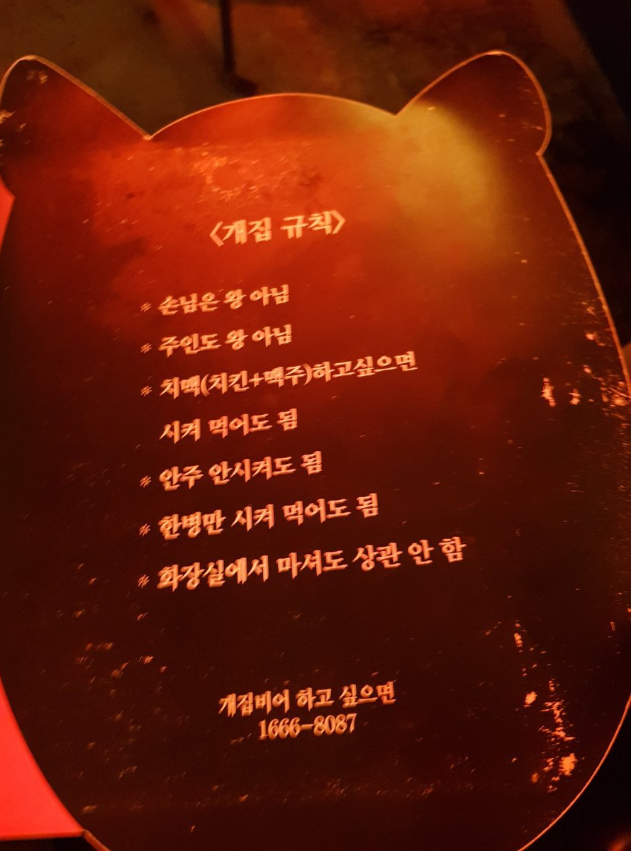 <개집 규칙>
* 손님은 왕 아님
* 주인도 왕 아님
* 치맥(치킨+맥주)하고싶으면
시켜 먹어도 됨
* 안주 안시켜도 됨
* 한병만 시켜 먹어도 됨
* 화장실에서 마셔도 상관 안 함
개집비어 하고 싶으면
1666-8087